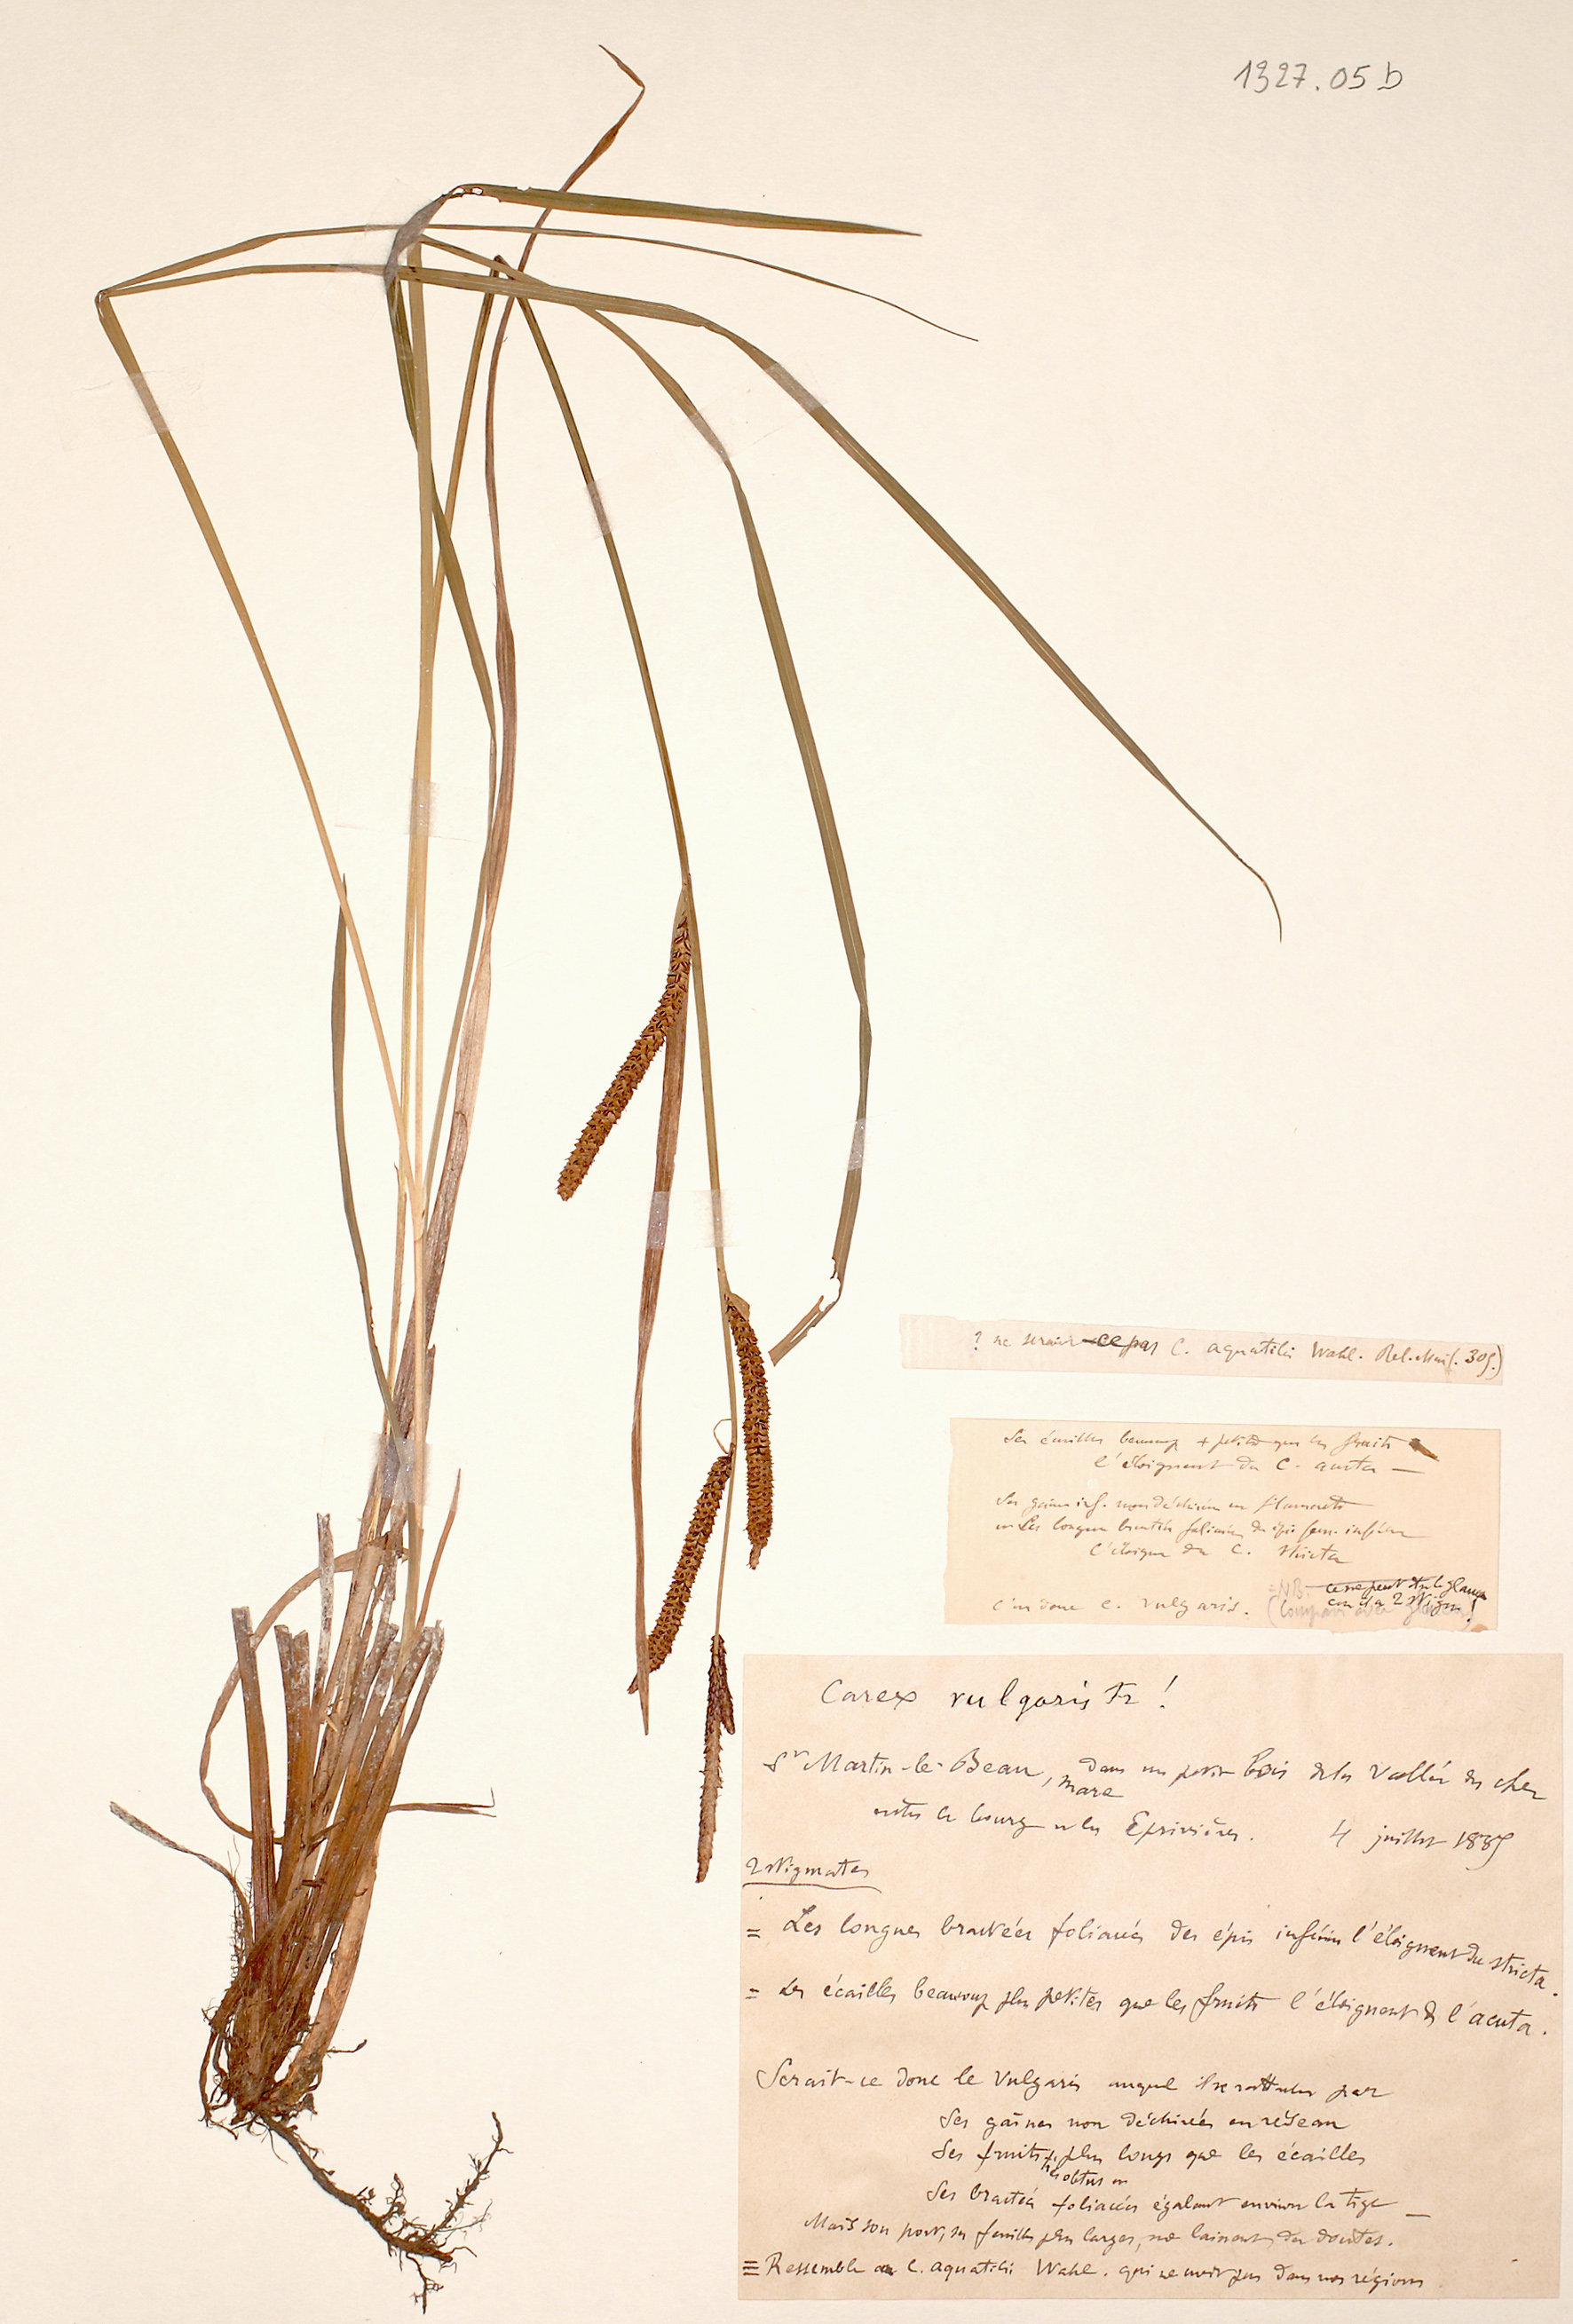 1327.05 b
? ne serait-ce pas C. aquatilis Wahl. Rel. Mai(. 305.)
Ses écailles beaucoup + petites que les fruits
l'éloignent du C. acuta —
Ses gaines inf. non déchirées en filaments
et les longues bractées foliacées des épis fem. inférieurs
l'éloigne du C. stricta
c'est donc C. vulgaris.
= NB. ce ne peut être le glauca
car il a 2 stigm!
(Comparer avec glauca)
Carex vulgaris Fr !
St Martin-le-Beau, dans un petit bois de la Vallée du Cher
mare
entre le bourg et les Eprivières. 4 juillet 1885
2 stigmates
= Les longues bractées foliacées des épis inférieurs l'éloignent du stricta.
= Les écailles beaucoup plus petites que les fruits l'éloignent de l'acuta.
Serait-ce donc le Vulgaris auquel il se rattache par
Ses gaînes non déchirées en réseau
Ses fruits plus longs que les écailles
très obtus
Ses bractées foliacées égalant environ la tige —
Mais son port, ses feuilles plus larges, me laissent des doutes.
≡ Ressemble au C. aquatilis Wahl. qui ne vient pas dans nos régions